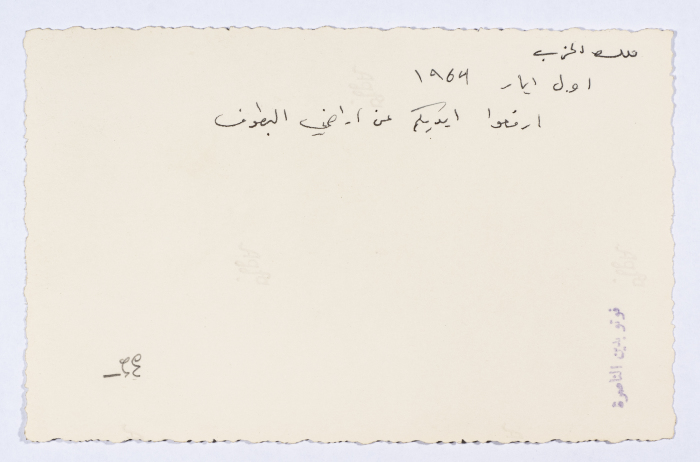 ملك الحزب
اول ايار ١٩٦٤
ارفعوا ايديكم عن اراضي البطوف
فوتو بدين الناصرة